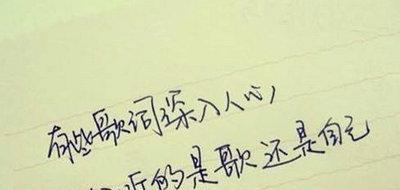 有些歌词深入人心，
的是歌还是自己